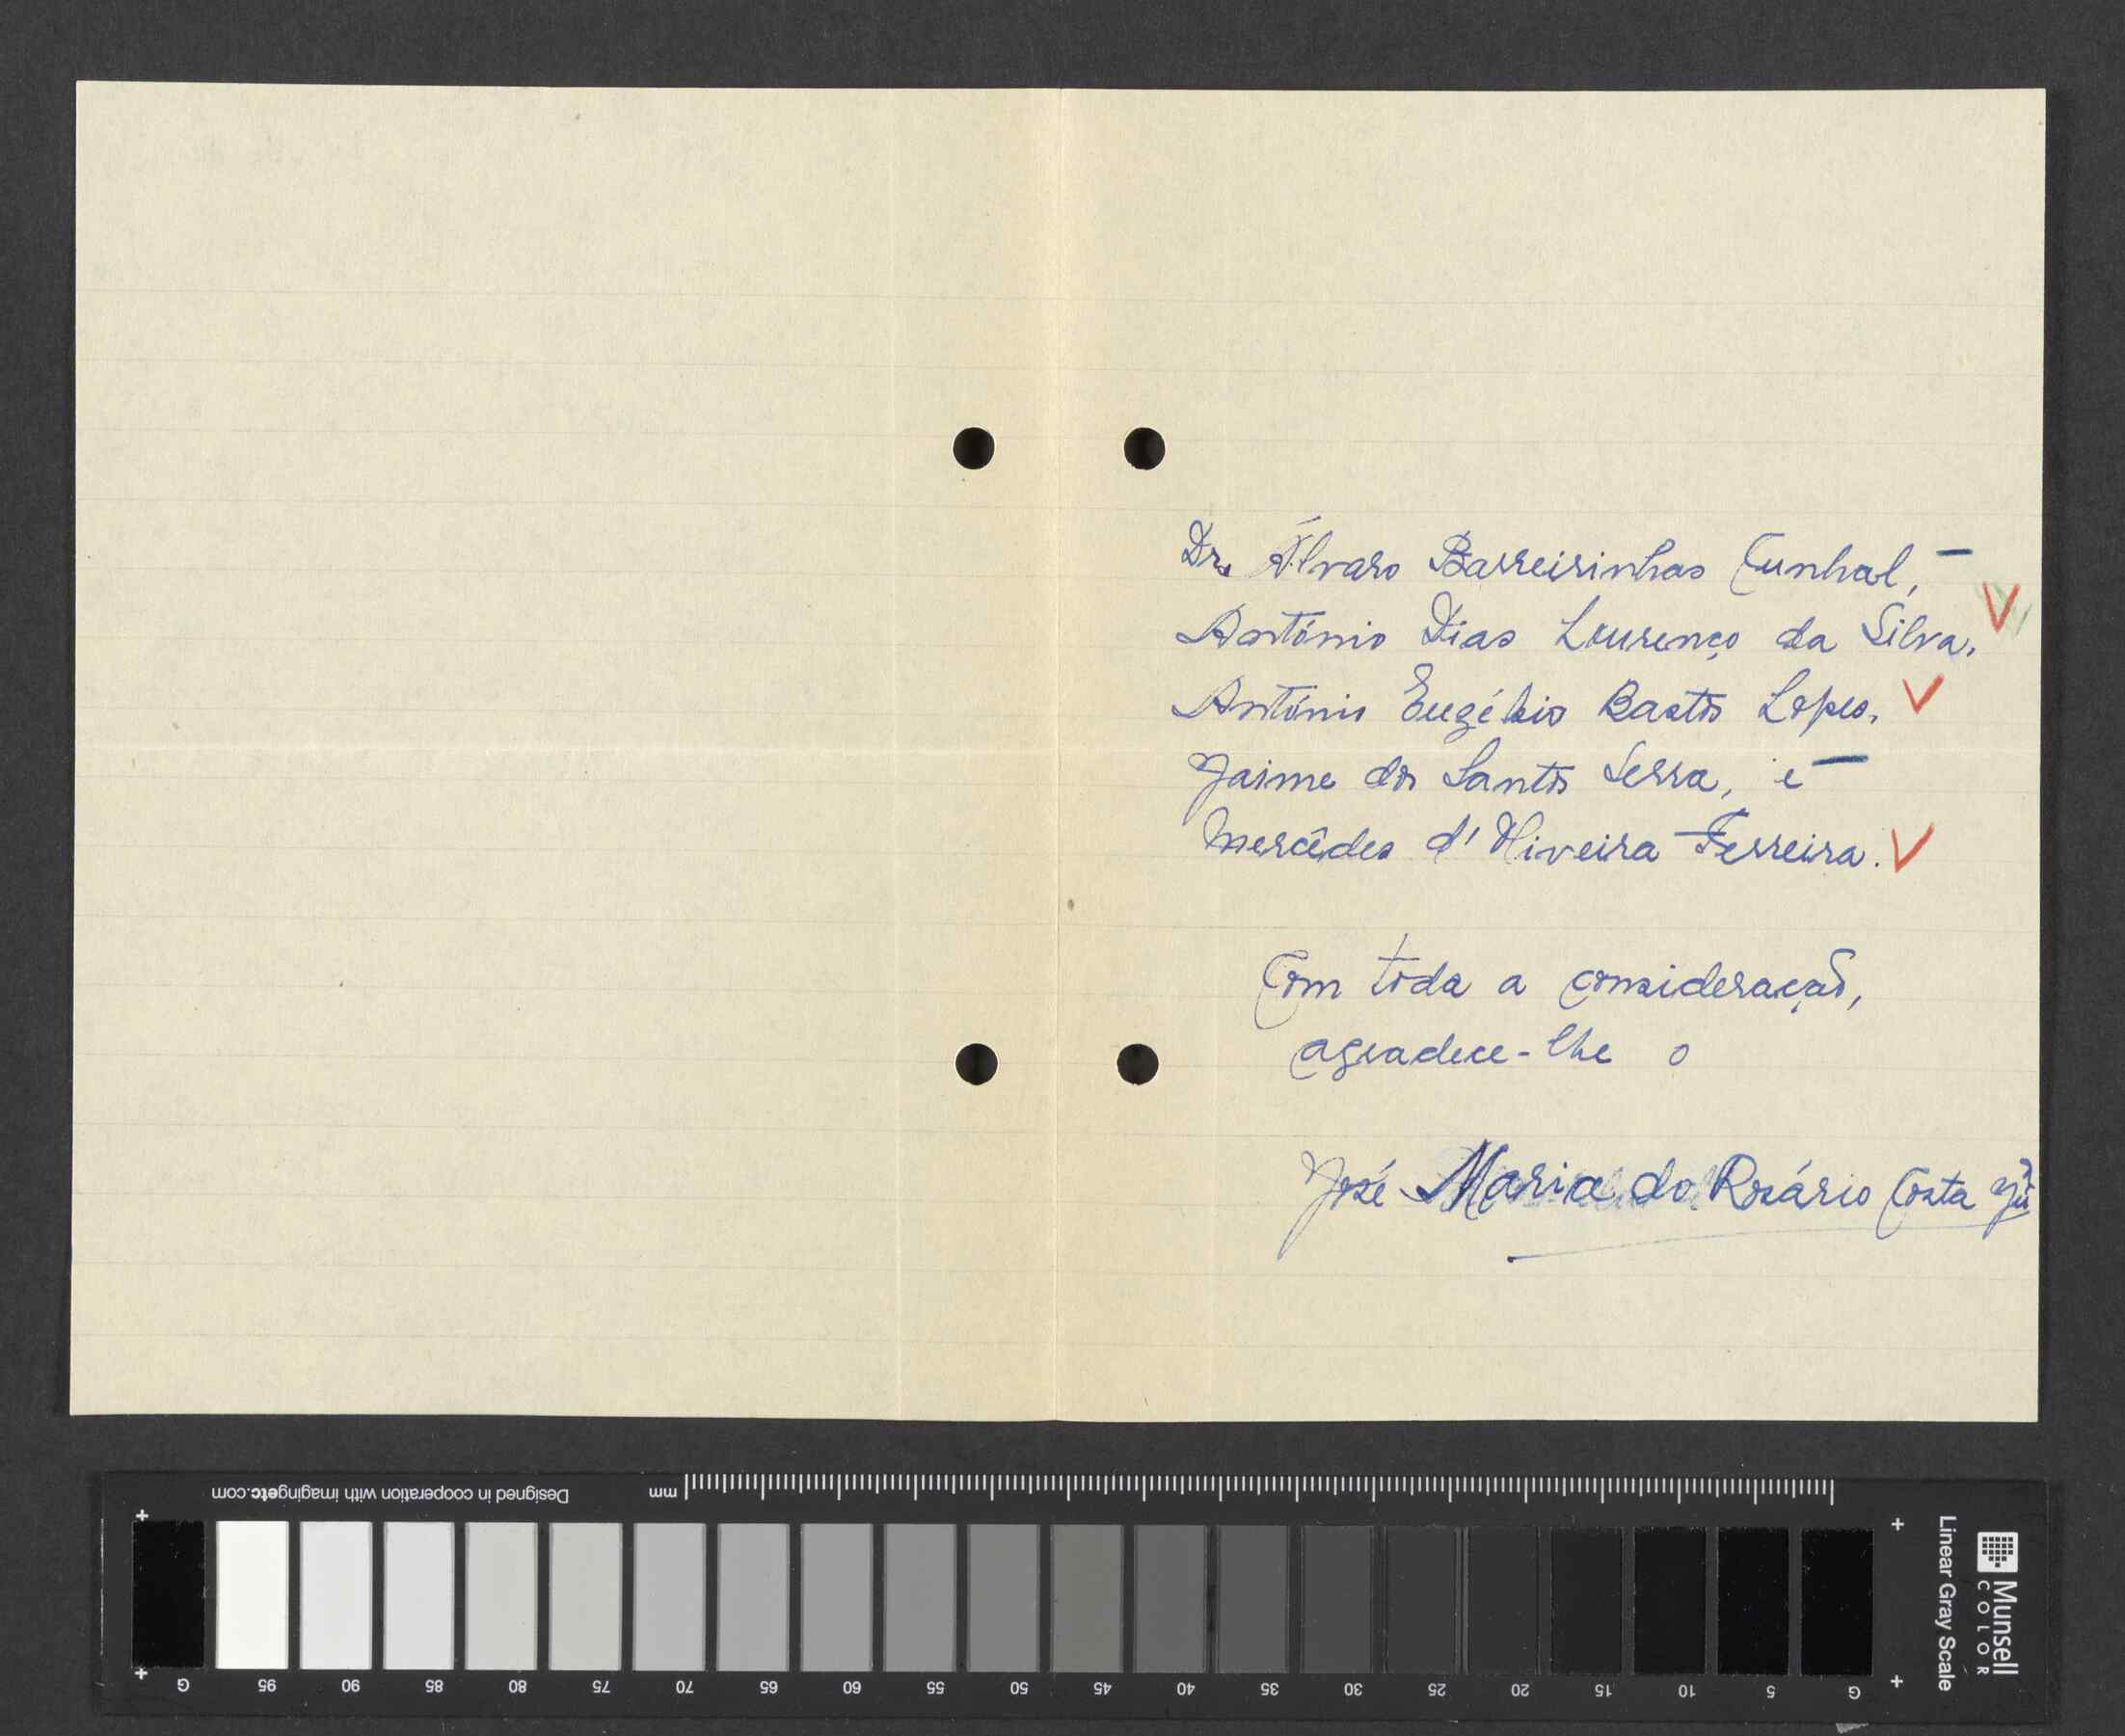 Dr. Álvaro Barreirinhas Cunhal, –
António Dias Lourenço da Silva, V
António Eugénio Bastos Lopes, V
Jaime dos Santos Serra, e –
Mercêdes d'Oliveira Ferreira. V
Com toda a consideração,
agradece-lhe o
José Maria do Rosário Costa Jº
Designed in cooperation with imagingetc.com
mm
G 95 90 85 80 75 70 65 60 55 50 45 40 35 30 25 20 15 10 5 G
Linear Gray Scale
Munsell
COLOR